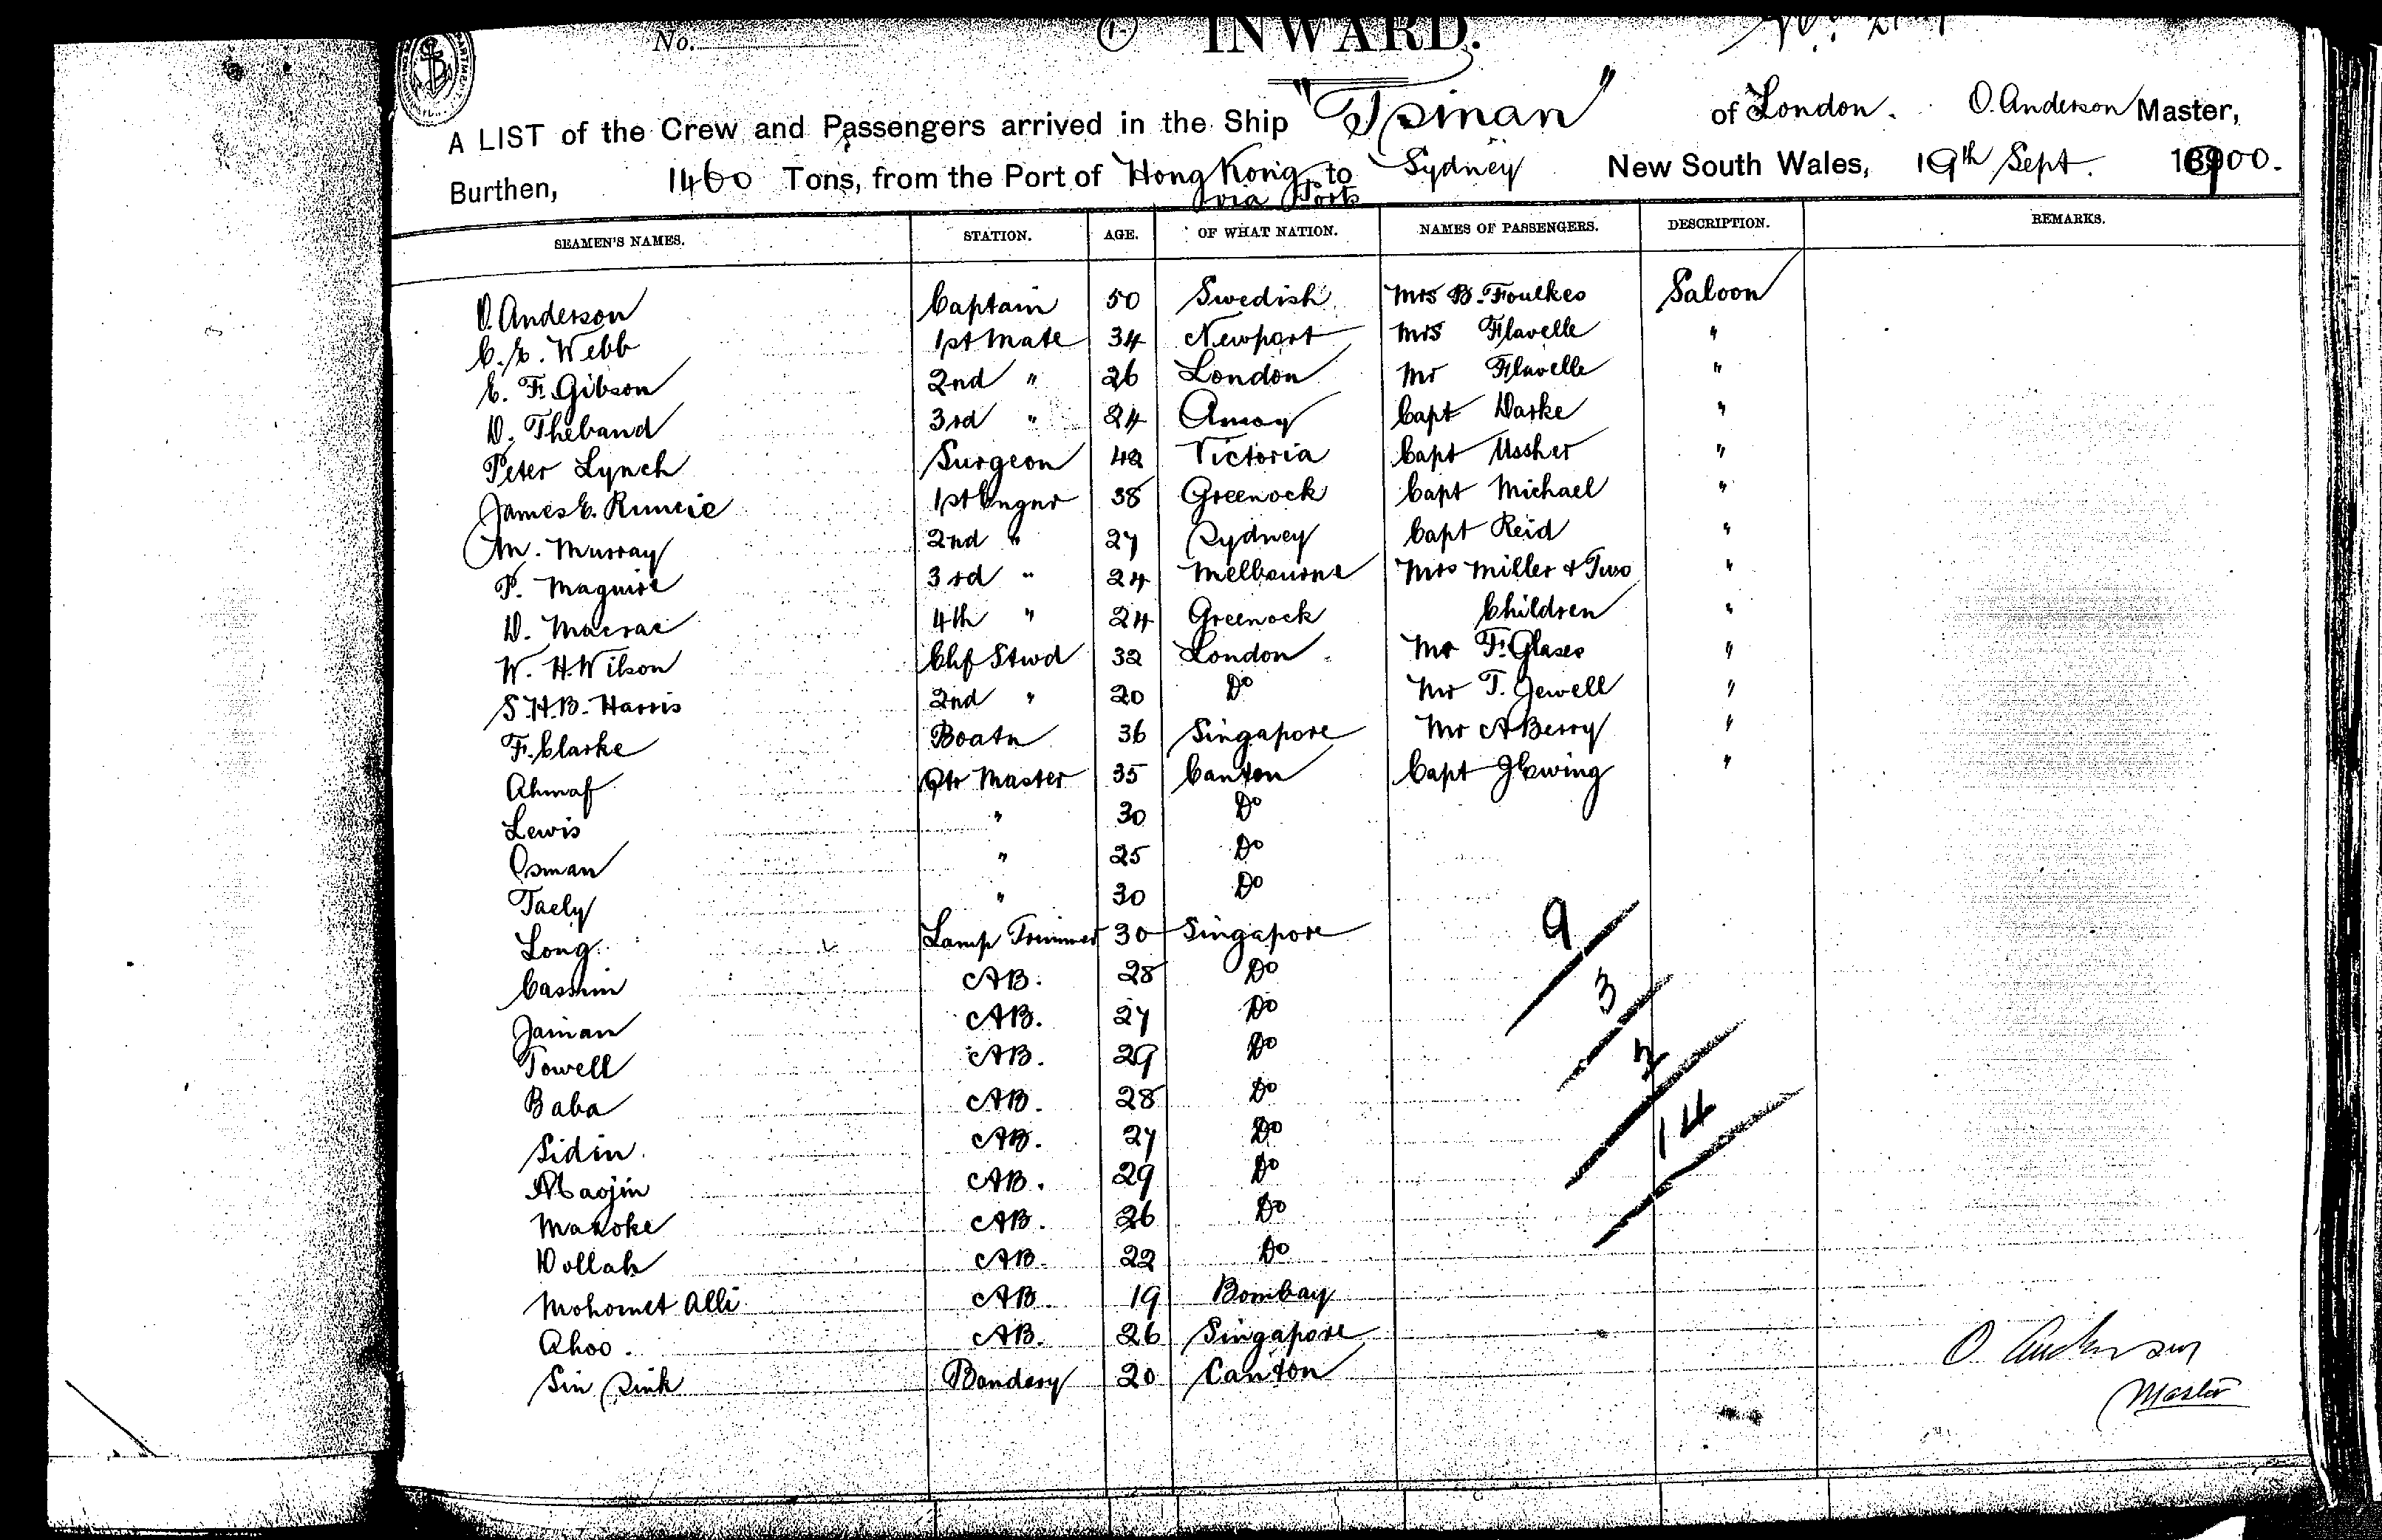 No.
1.
INWARD.
A LIST of the Crew and Passengers arrived in the Ship "Tsinan" of London. O. Anderson Master,
Burthen, 1460 Tons, from the Port of Hong Kong to Sydney New South Wales, 19th Sept. 1900.
via Ports
SEAMEN'S NAMES. STATION. AGE. OF WHAT NATION. NAMES OF PASSENGERS. DESCRIPTION. REMARKS.
O. Anderson Captain 50 Swedish Mrs B. Foulkes Saloon
C. E. Webb 1st Mate 34 Newport Mrs Flavelle "
E. F. Gibson 2nd " 26 London Mr Flavelle "
D. Theband 3rd " 24 Amoy Capt Darke "
Peter Lynch Surgeon 42 Victoria Capt Ussher "
James E. Runcie 1st Engnr 38 Greenock Capt Michael "
M. Murray 2nd " 27 Sydney Capt Reid "
P. Maguire 3rd " 24 Melbourne Mrs Miller & Two "
D. Macrae 4th " 24 Greenock Children "
W. H. Wilson Chf Stwd 32 London Mr F. Glases "
S. H. B. Harris 2nd " 20 Do Mr T. Jewell "
F. Clarke Boatn 36 Singapore Mr A Berry "
Ahmaf Qtr Master 35 Canton Capt J Ewing "
Lewis " 30 Do
Osman " 25 Do
Taely " 30 Do
Long Lamp Trimmer 30 Singapore
Cassim AB. 28 Do
Jainan AB. 27 Do
Towell AB. 29 Do
Baba AB. 28 Do
Sidin AB. 27 Do
AB. 29 Do
Maroke AB. 26 Do
Dollah AB. 22 Do
Mohomet Alli AB. 19 Bombay
Ahoo. AB. 26 Singapore
Sin Sink Bandary 20 Canton
9
3
2
14
O Anderson
Master